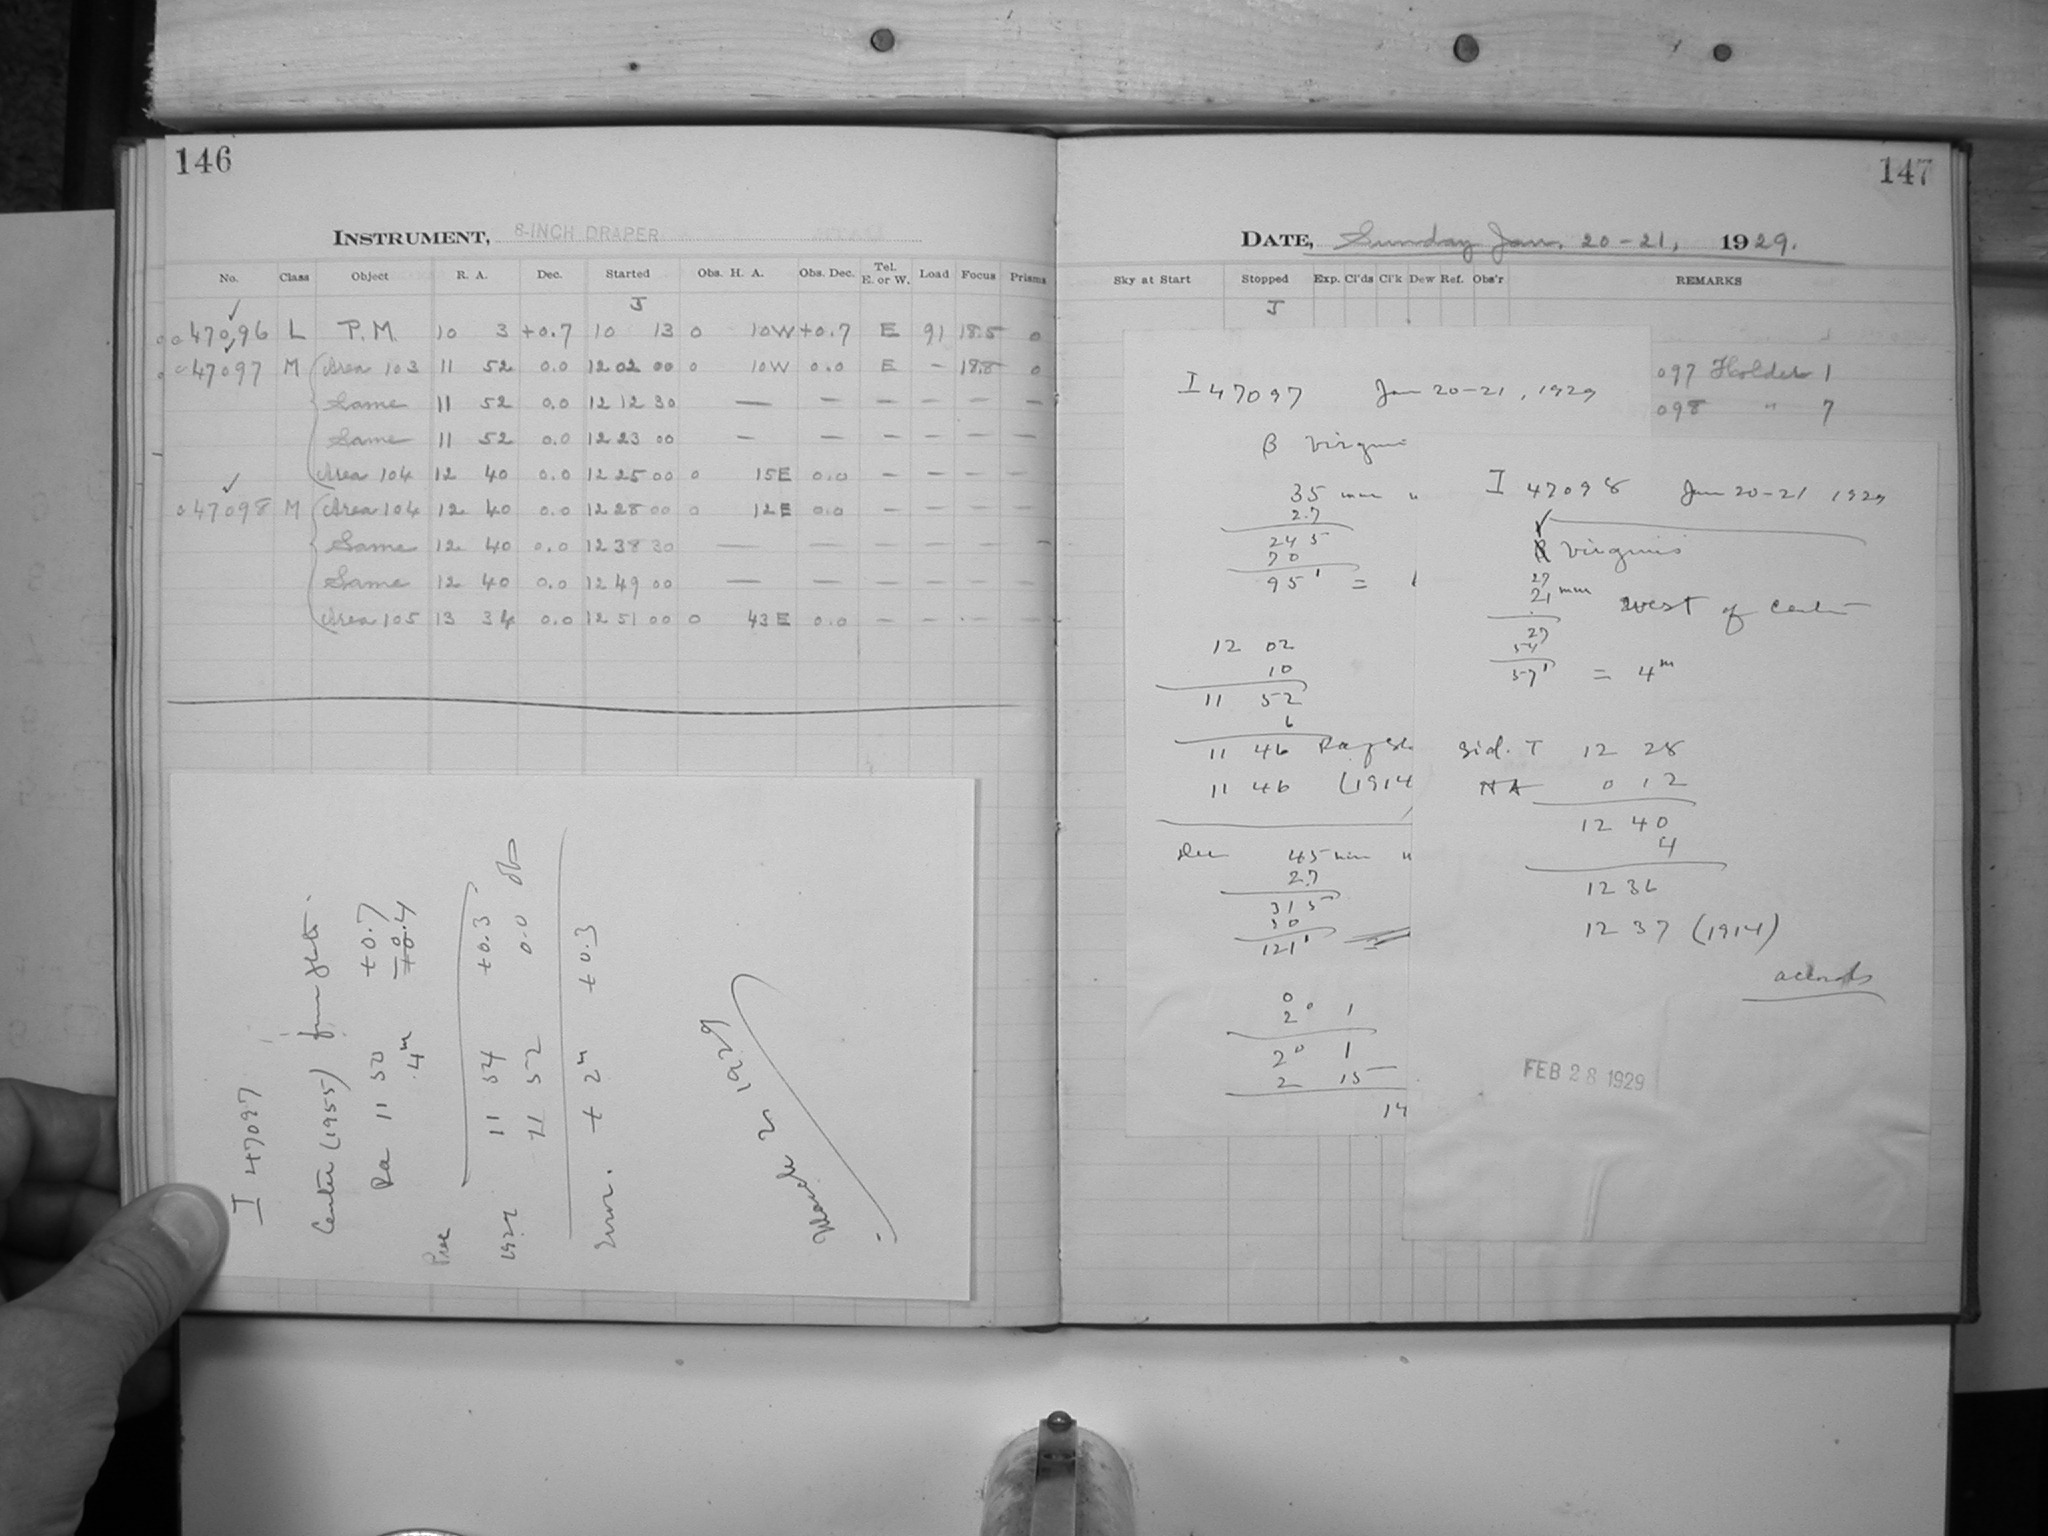 146
INSTRUMENT, 8-INCH DRAPER
No. Class Object R. A. Dec. Started Obs. H. A. Obs. Dec. Tel. E. or W. Load Focus Prisms
J
47096 L P.M. 10 3 +0.7 10 13 0 10W +0.7 E 91 18.5 0
47097 M Area 103 11 52 0.0 12 02 00 0 10W 0.0 E - 18.8 0
Same 11 52 0.0 12 12 30 — — — — — —
Same 11 52 0.0 12 23 00 — — — — — —
Area 104 12 40 0.0 12 25 00 0 15E 0.0 — — — —
47098 M Area 104 12 40 0.0 12 28 00 0 12E 0.0 — — — —
Same 12 40 0.0 12 38 30 — — — — — —
Same 12 40 0.0 12 49 00 — — — — — —
Area 105 13 34 0.0 12 51 00 0 43E 0.0 — — — —
I 47097
Center (1955) from plate.
Ra 11 50 +0.7
4m -0.4
Prec
11 54 +0.3
1929 11 52 0.0
Error. + 2m +0.3
March 2 1929
147
DATE, Sunday Jan. 20-21, 1929.
Sky at Start Stopped Exp. Cl'ds Cl'k Dew Ref. Obs'r REMARKS
J
097 Holder 1
098 " 7
I 47097 Jan 20-21, 1929
β Virgini
35 mm
2.7
245
70
95' =
12 02
10
11 52
6
11 46
11 46 (1914
Dec 45 mm
2.7
315
90
121' =
0
2° 1
2° 1
2 15
14
I 47098 Jan 20-21 1929
Virginis
27
21 mm west of center
27
54
57' = 4m
Sid. T 12 28
HA 0 12
12 40
4
12 36
12 37 (1914)
accords
FEB 28 1929